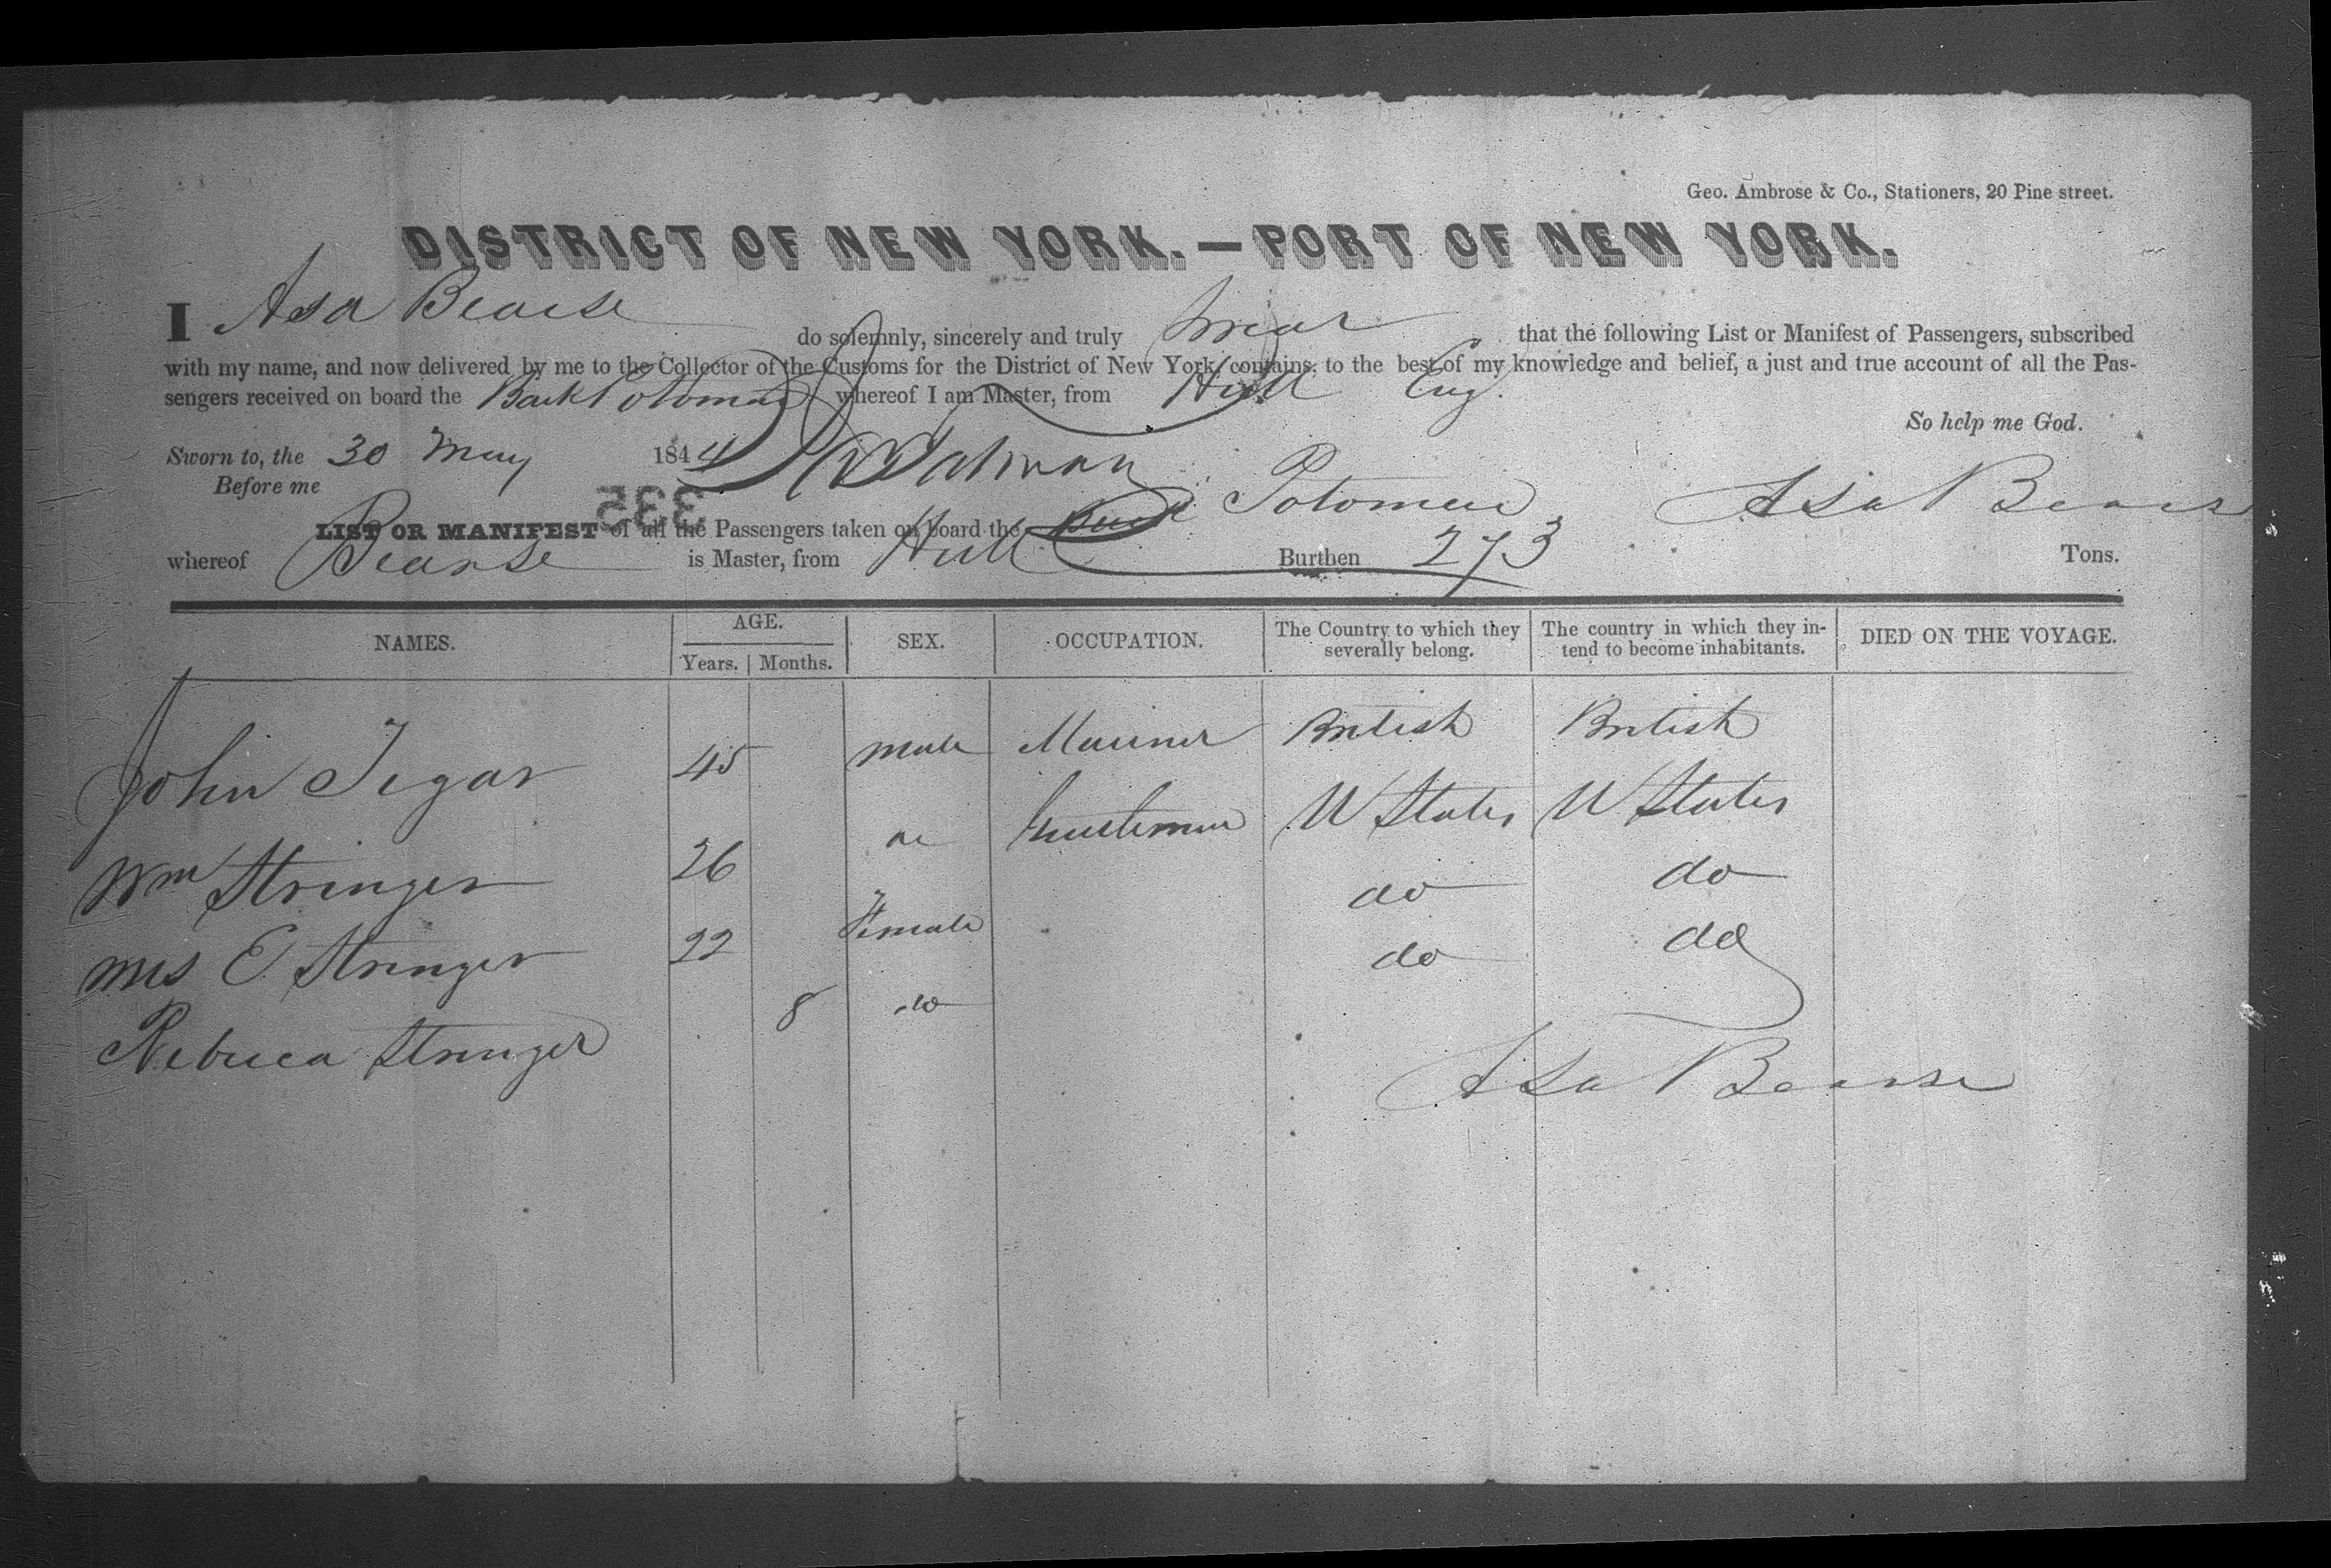 Geo. Ambrose & Co., Stationers, 20 Pine street.
DISTRICT OF NEW YORK.—PORT OF NEW YORK.
I Asa Bearse do solemnly, sincerely and truly swear that the following List or Manifest of Passengers, subscribed
with my name, and now delivered by me to the Collector of the Customs for the District of New York, contains, to the best of my knowledge and belief, a just and true account of all the Pas-
sengers received on board the Bark Potomac whereof I am Master, from Hull Eng.
So help me God.
Sworn to, the 30 May 1844
Before me
Asa Bearse
335
LIST OR MANIFEST of all the Passengers taken on board the Bark Potomac
whereof Bearse is Master, from Hull Burthen 273 Tons.
NAMES. AGE. SEX. OCCUPATION. The Country to which they severally belong. The country in which they in-tend to become inhabitants. DIED ON THE VOYAGE.
Years. Months.
John Segar 45 male Mariner British British
Wm Stringer 26 do Gentleman U States U States
Mrs E. Stringer 22 Female do do
Rebecca Stringer 8 do do do
Asa Bearse